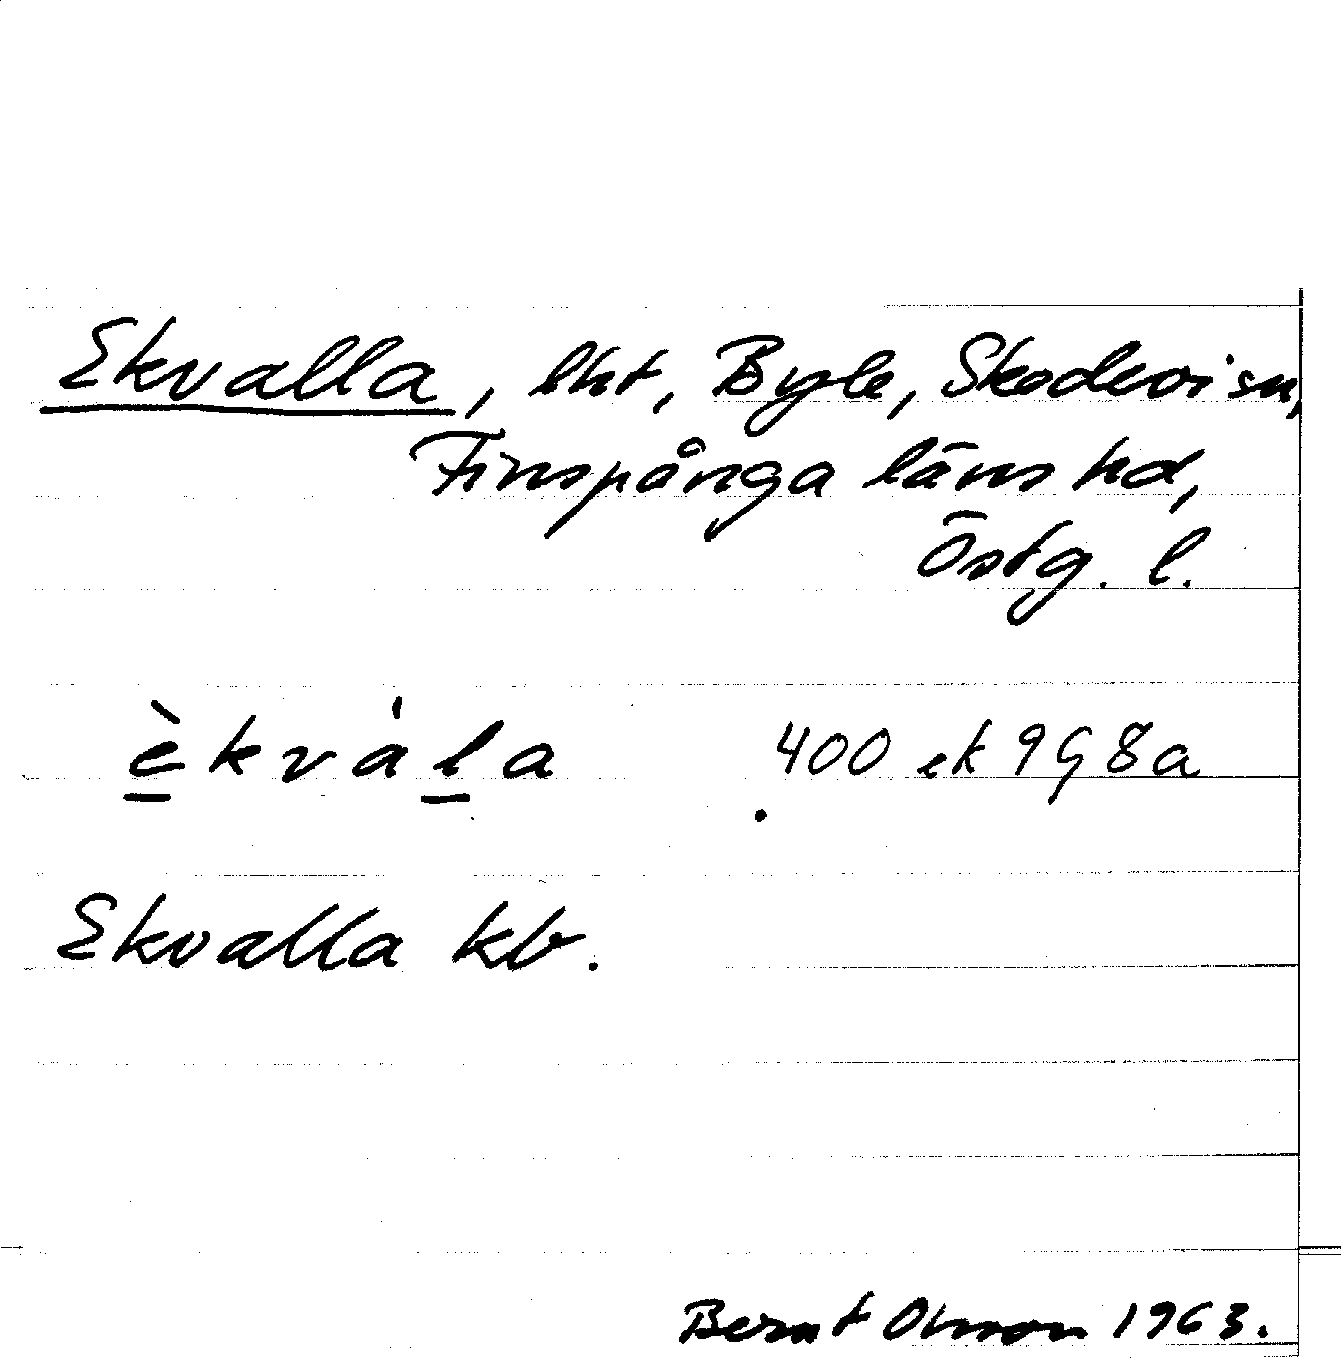 Ekvalla, lht, Byle, Skedevi sn,
Finspånga läns hd,
Östg. l.
è̱kvàḻa .400 ek 9G 8a
Ekvalla kb.
Bernt Olsson 1963.